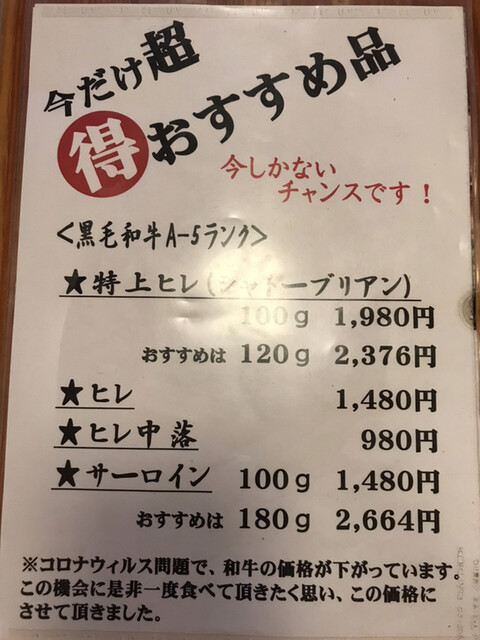 今だけ超
得おすすめ品
今しかない
チャンスです！
＜黒毛和牛A-5ランク＞
★特上ヒレ(シャトーブリアン)
100g 1,980円
おすすめは 120g 2,376円
★ヒレ 1,480円
★ヒレ中落 980円
★サーロイン 100g 1,480円
おすすめは 180g 2,664円
※コロナウィルス問題で、和牛の価格が下がっています。
この機会に是非一度食べて頂きたく思い、この価格に
させて頂きました。